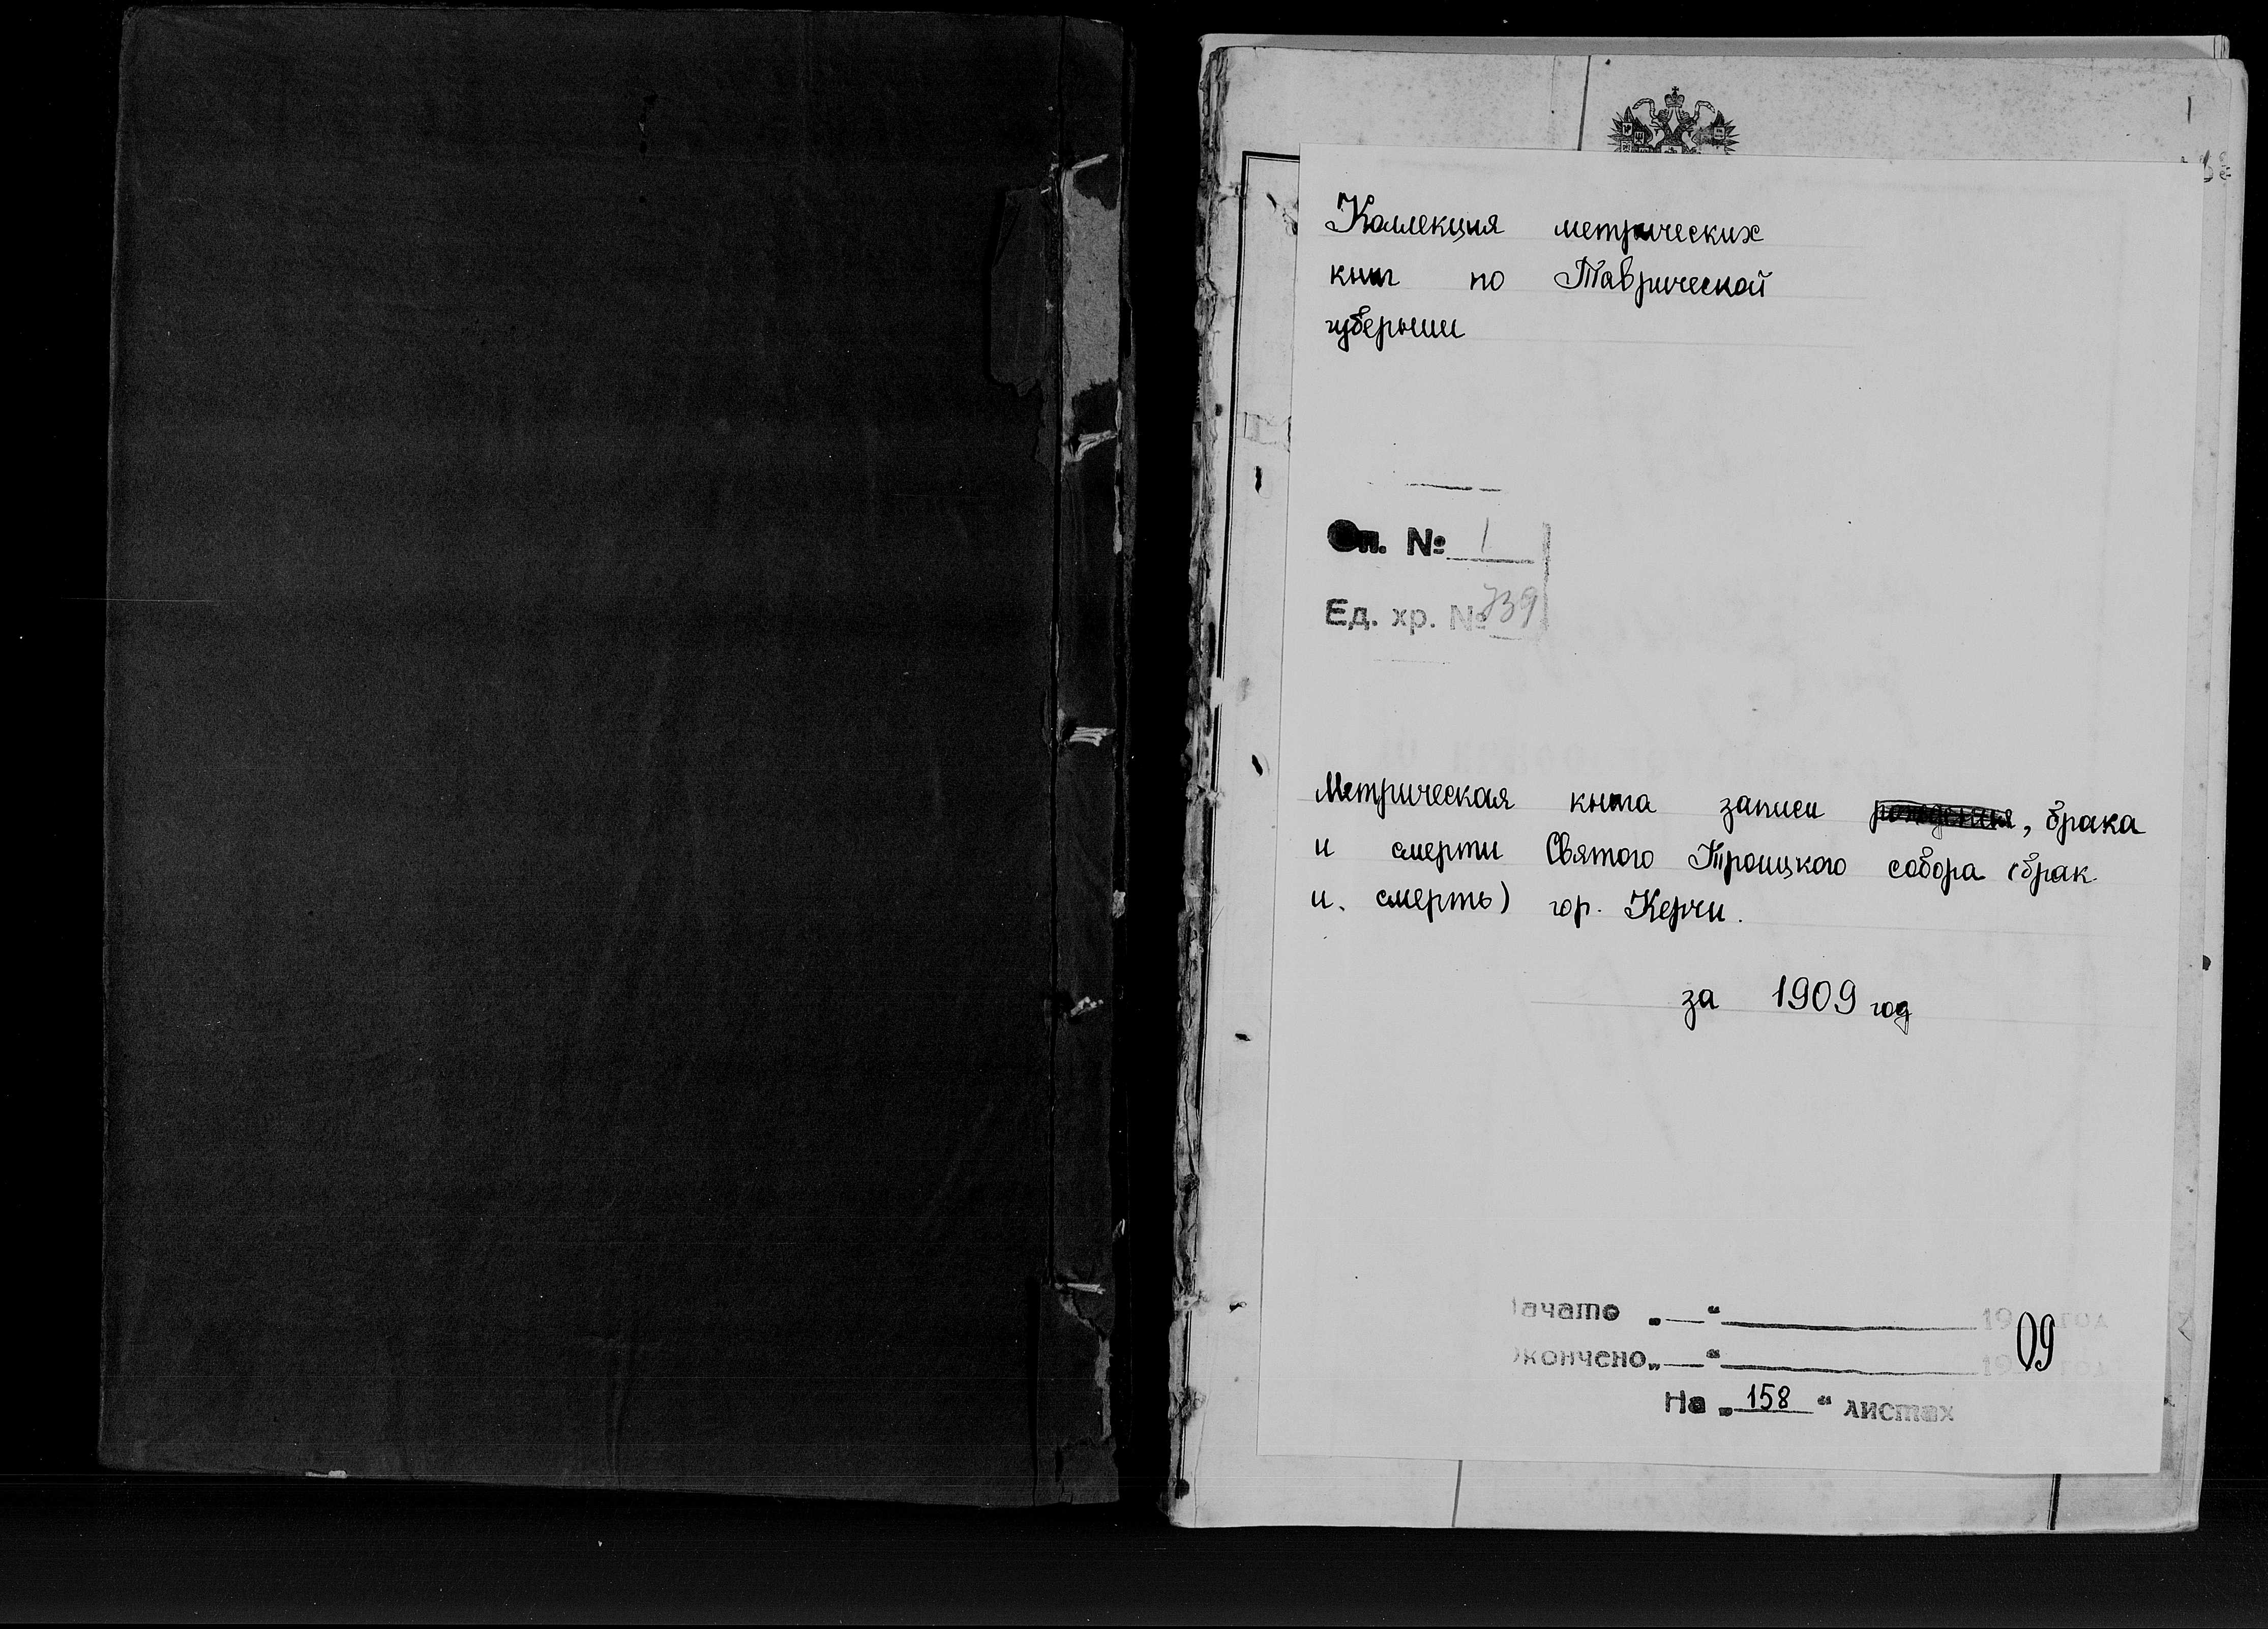 1
Коллекция метрических
книг по Таврической
губернии
Оп. № 1
Ед. хр. № 739
Метрическая книга записи рождения, брака
и смерти Святого Троицкого собора (брак
и. смерть) гор. Керчи.
за 1909 год
Начато „ — “ 19 год
Окончено „ — “ 1909 год
На „ 158 “ листах